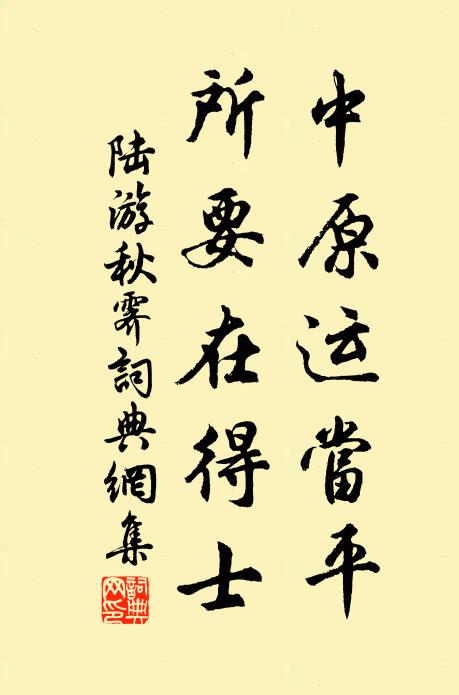 中原运當平
所要在得士
陆游秋霁詞典網集
詞典网印